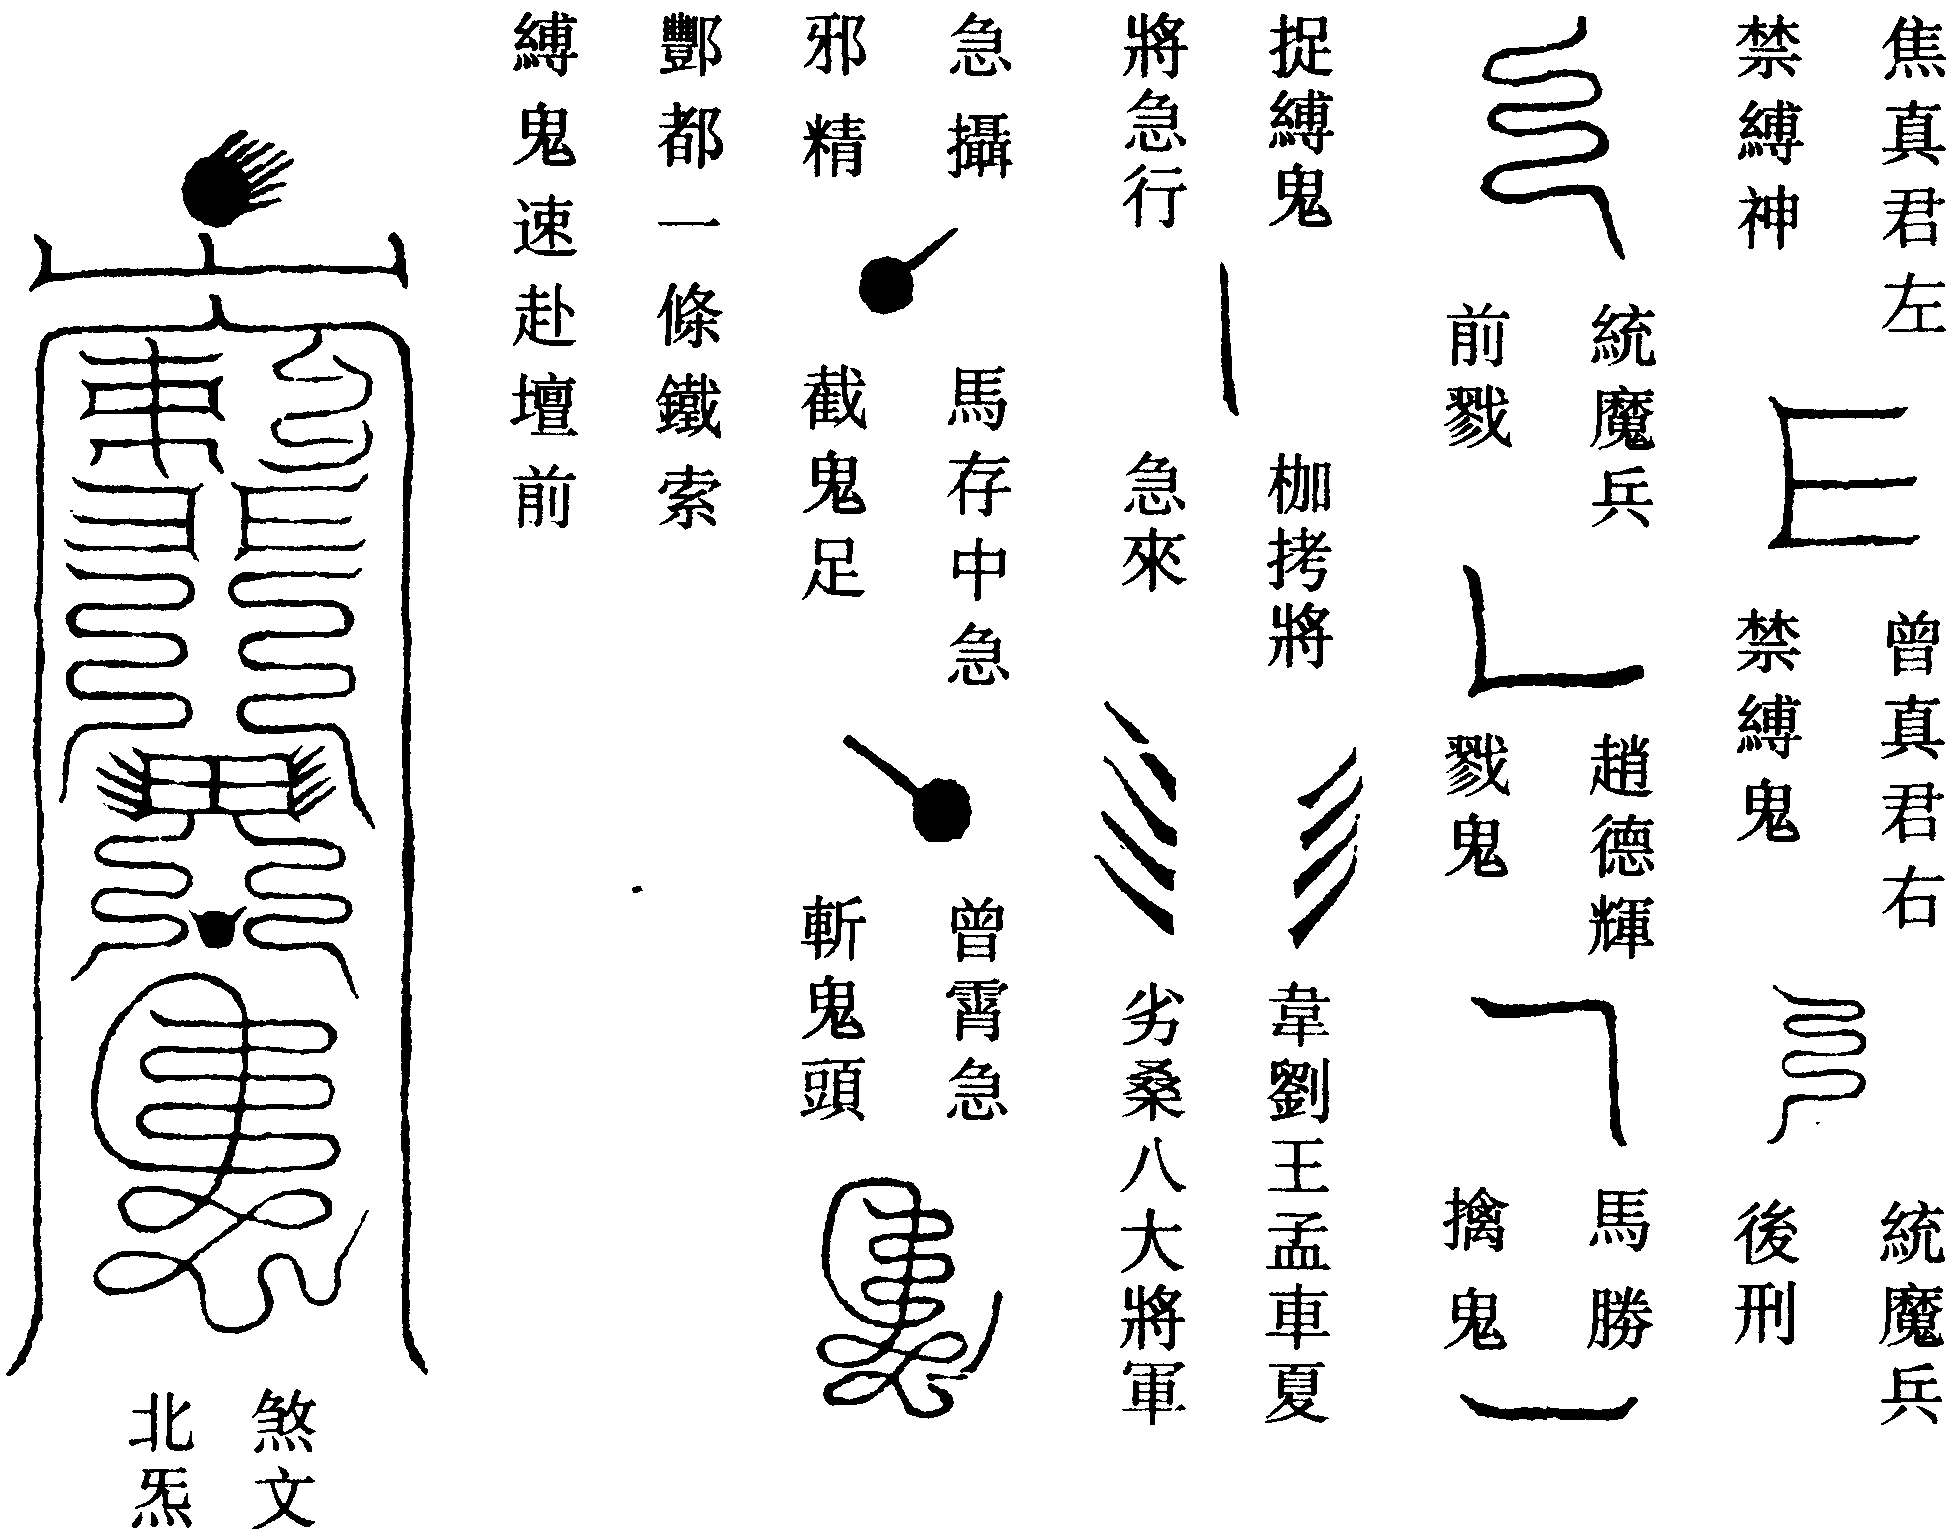 焦真君左
禁縛神
曾真君右
禁縛鬼
統魔兵
後刑
統魔兵
前戮
趙德輝
戮鬼
馬勝
擒鬼
捉縛鬼
將急行
枷拷將
急來
韋劉王孟車夏
劣桑八大將軍
急攝
邪精
馬存中急
截鬼足
曾霄急
斬鬼頭
酆都一條鐵索
縛鬼速赴壇前
煞文
北炁